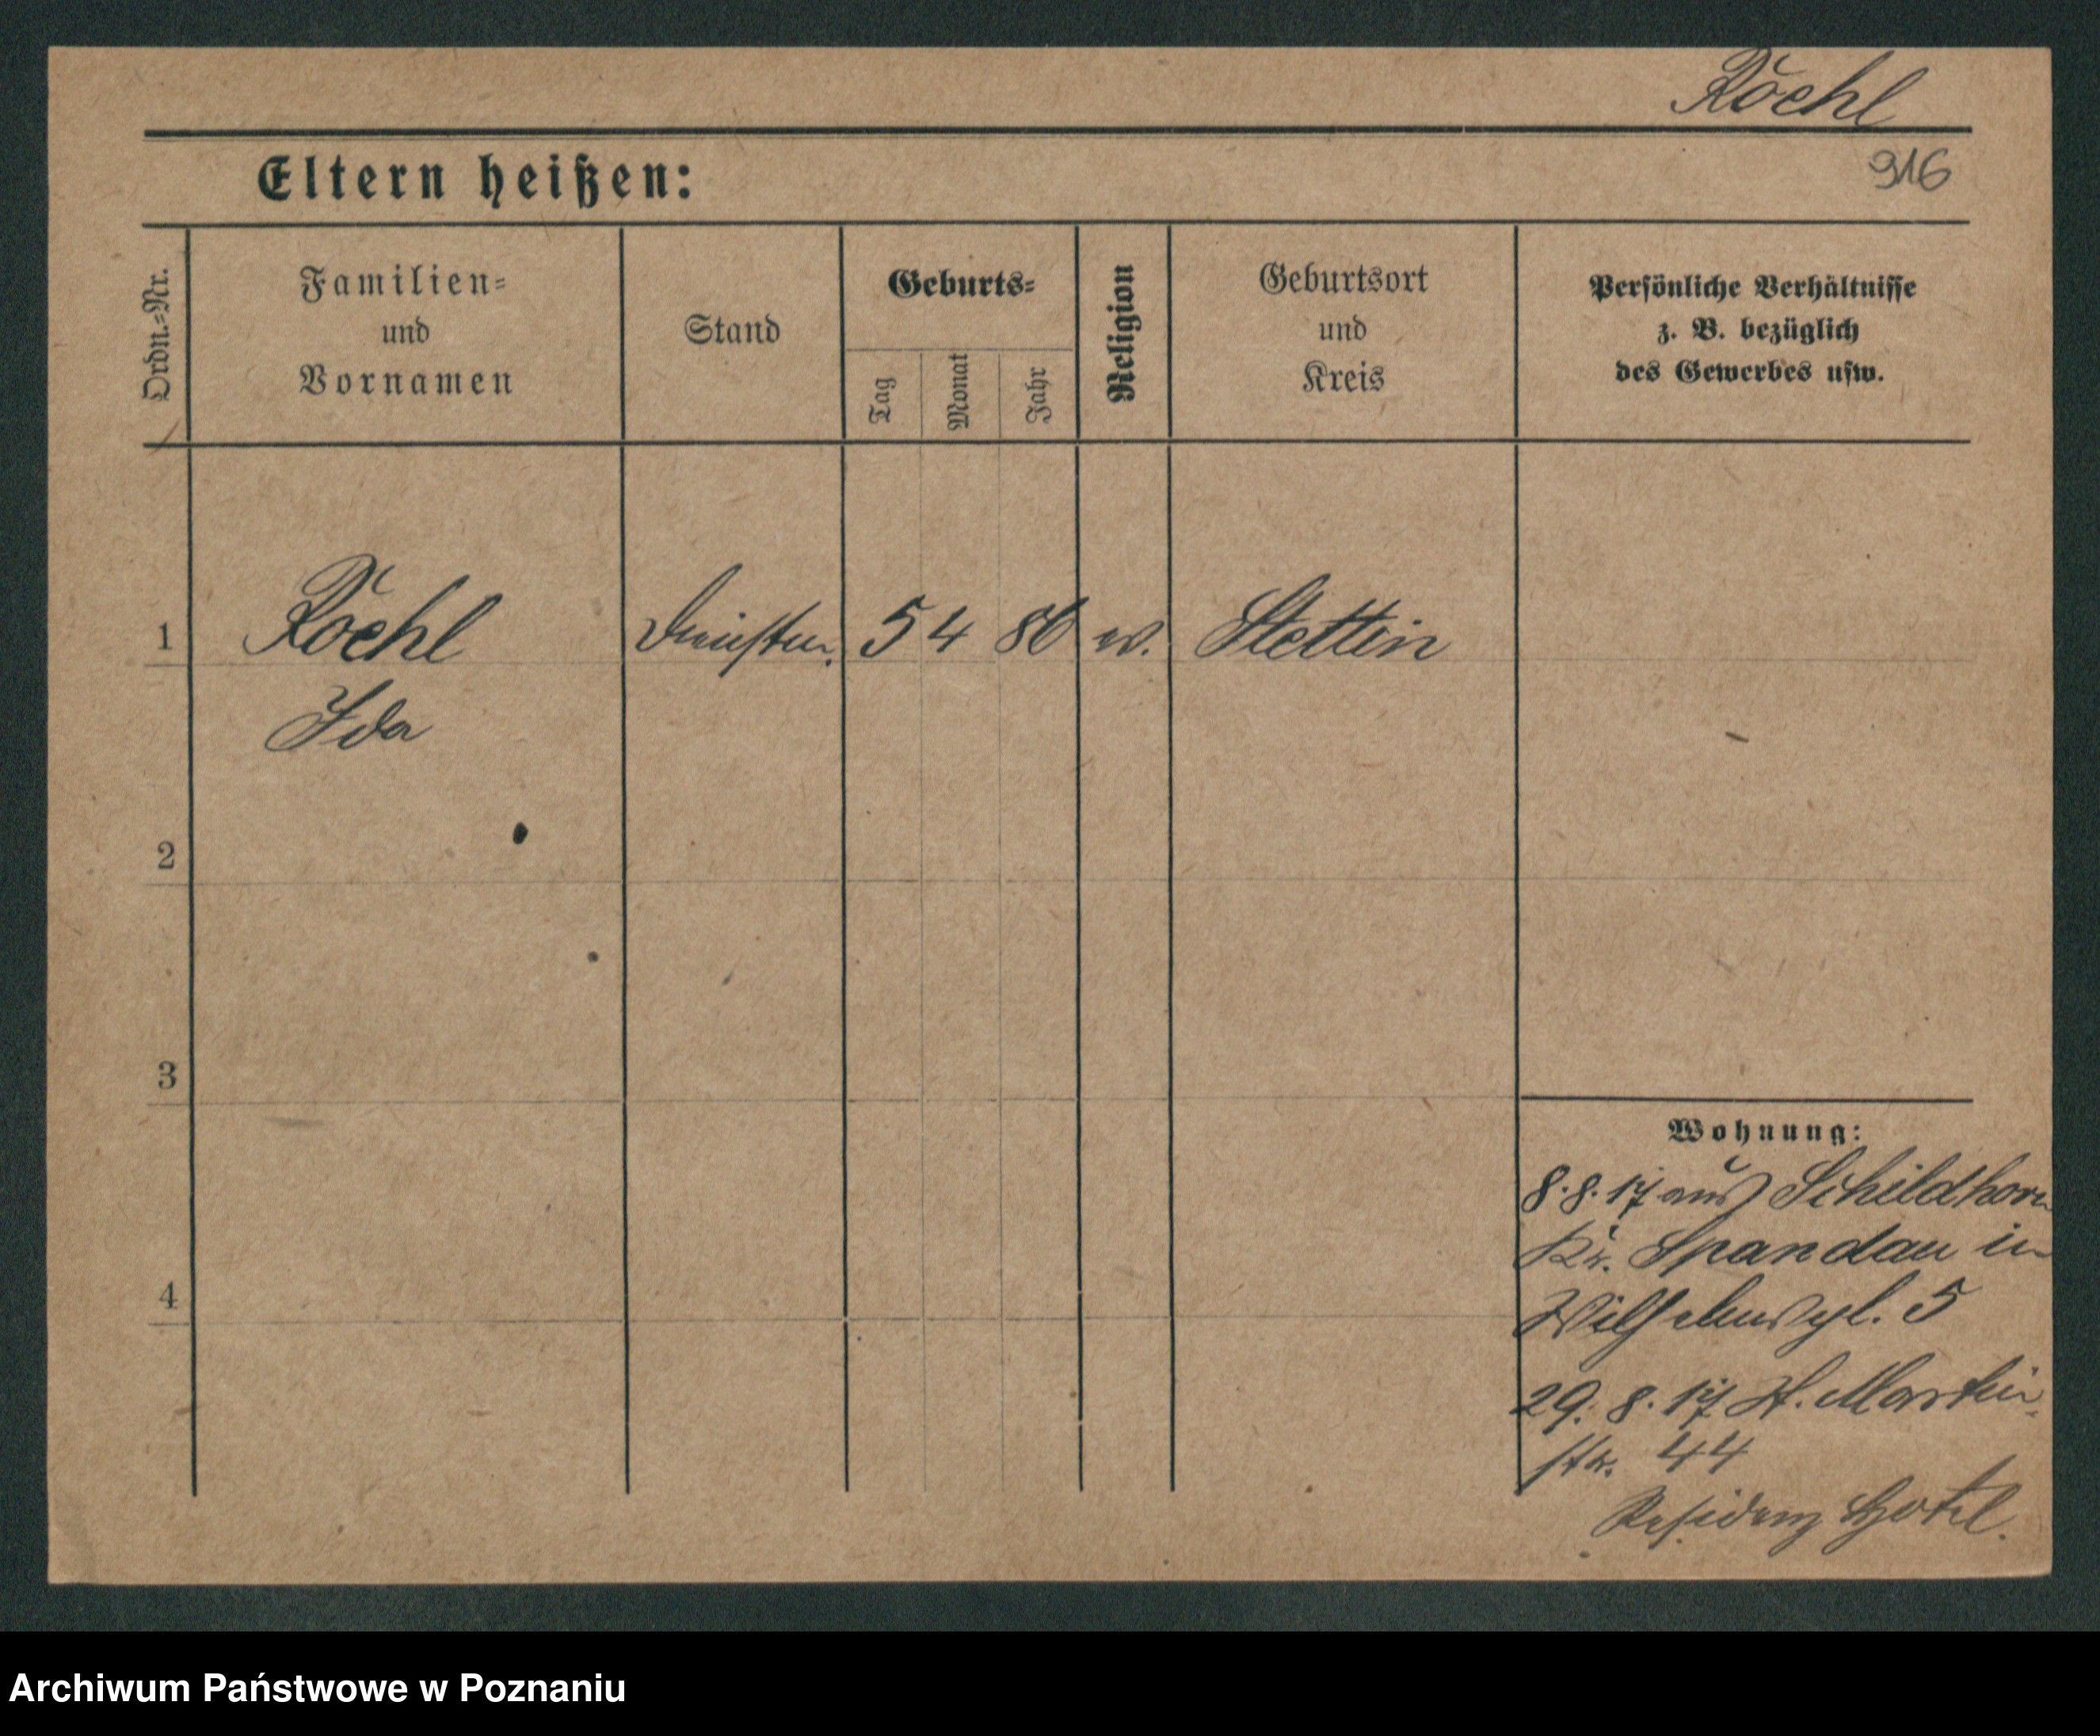 Röehl
916
Eltern heißen:
Ordn.-Nr.
Familien-
und
Vornamen
Stand
Geburts-
Tag
Monat
Jahr
Religion
Geburtsort
und
Kreis
Persönliche Verhältnisse
z. B. bezüglich
des Gewerbes usw.
1 Röehl 5 4 86 Stettin
Ida
2
3
4
Wohnung:
8.8.17 aus Schildhorn
Kr. Spandau in
Wilhelmspl. 5
29. 8. 17 St. Martin-
str. 44
Residenz Hotel.
Archiwum Państwowe w Poznaniu